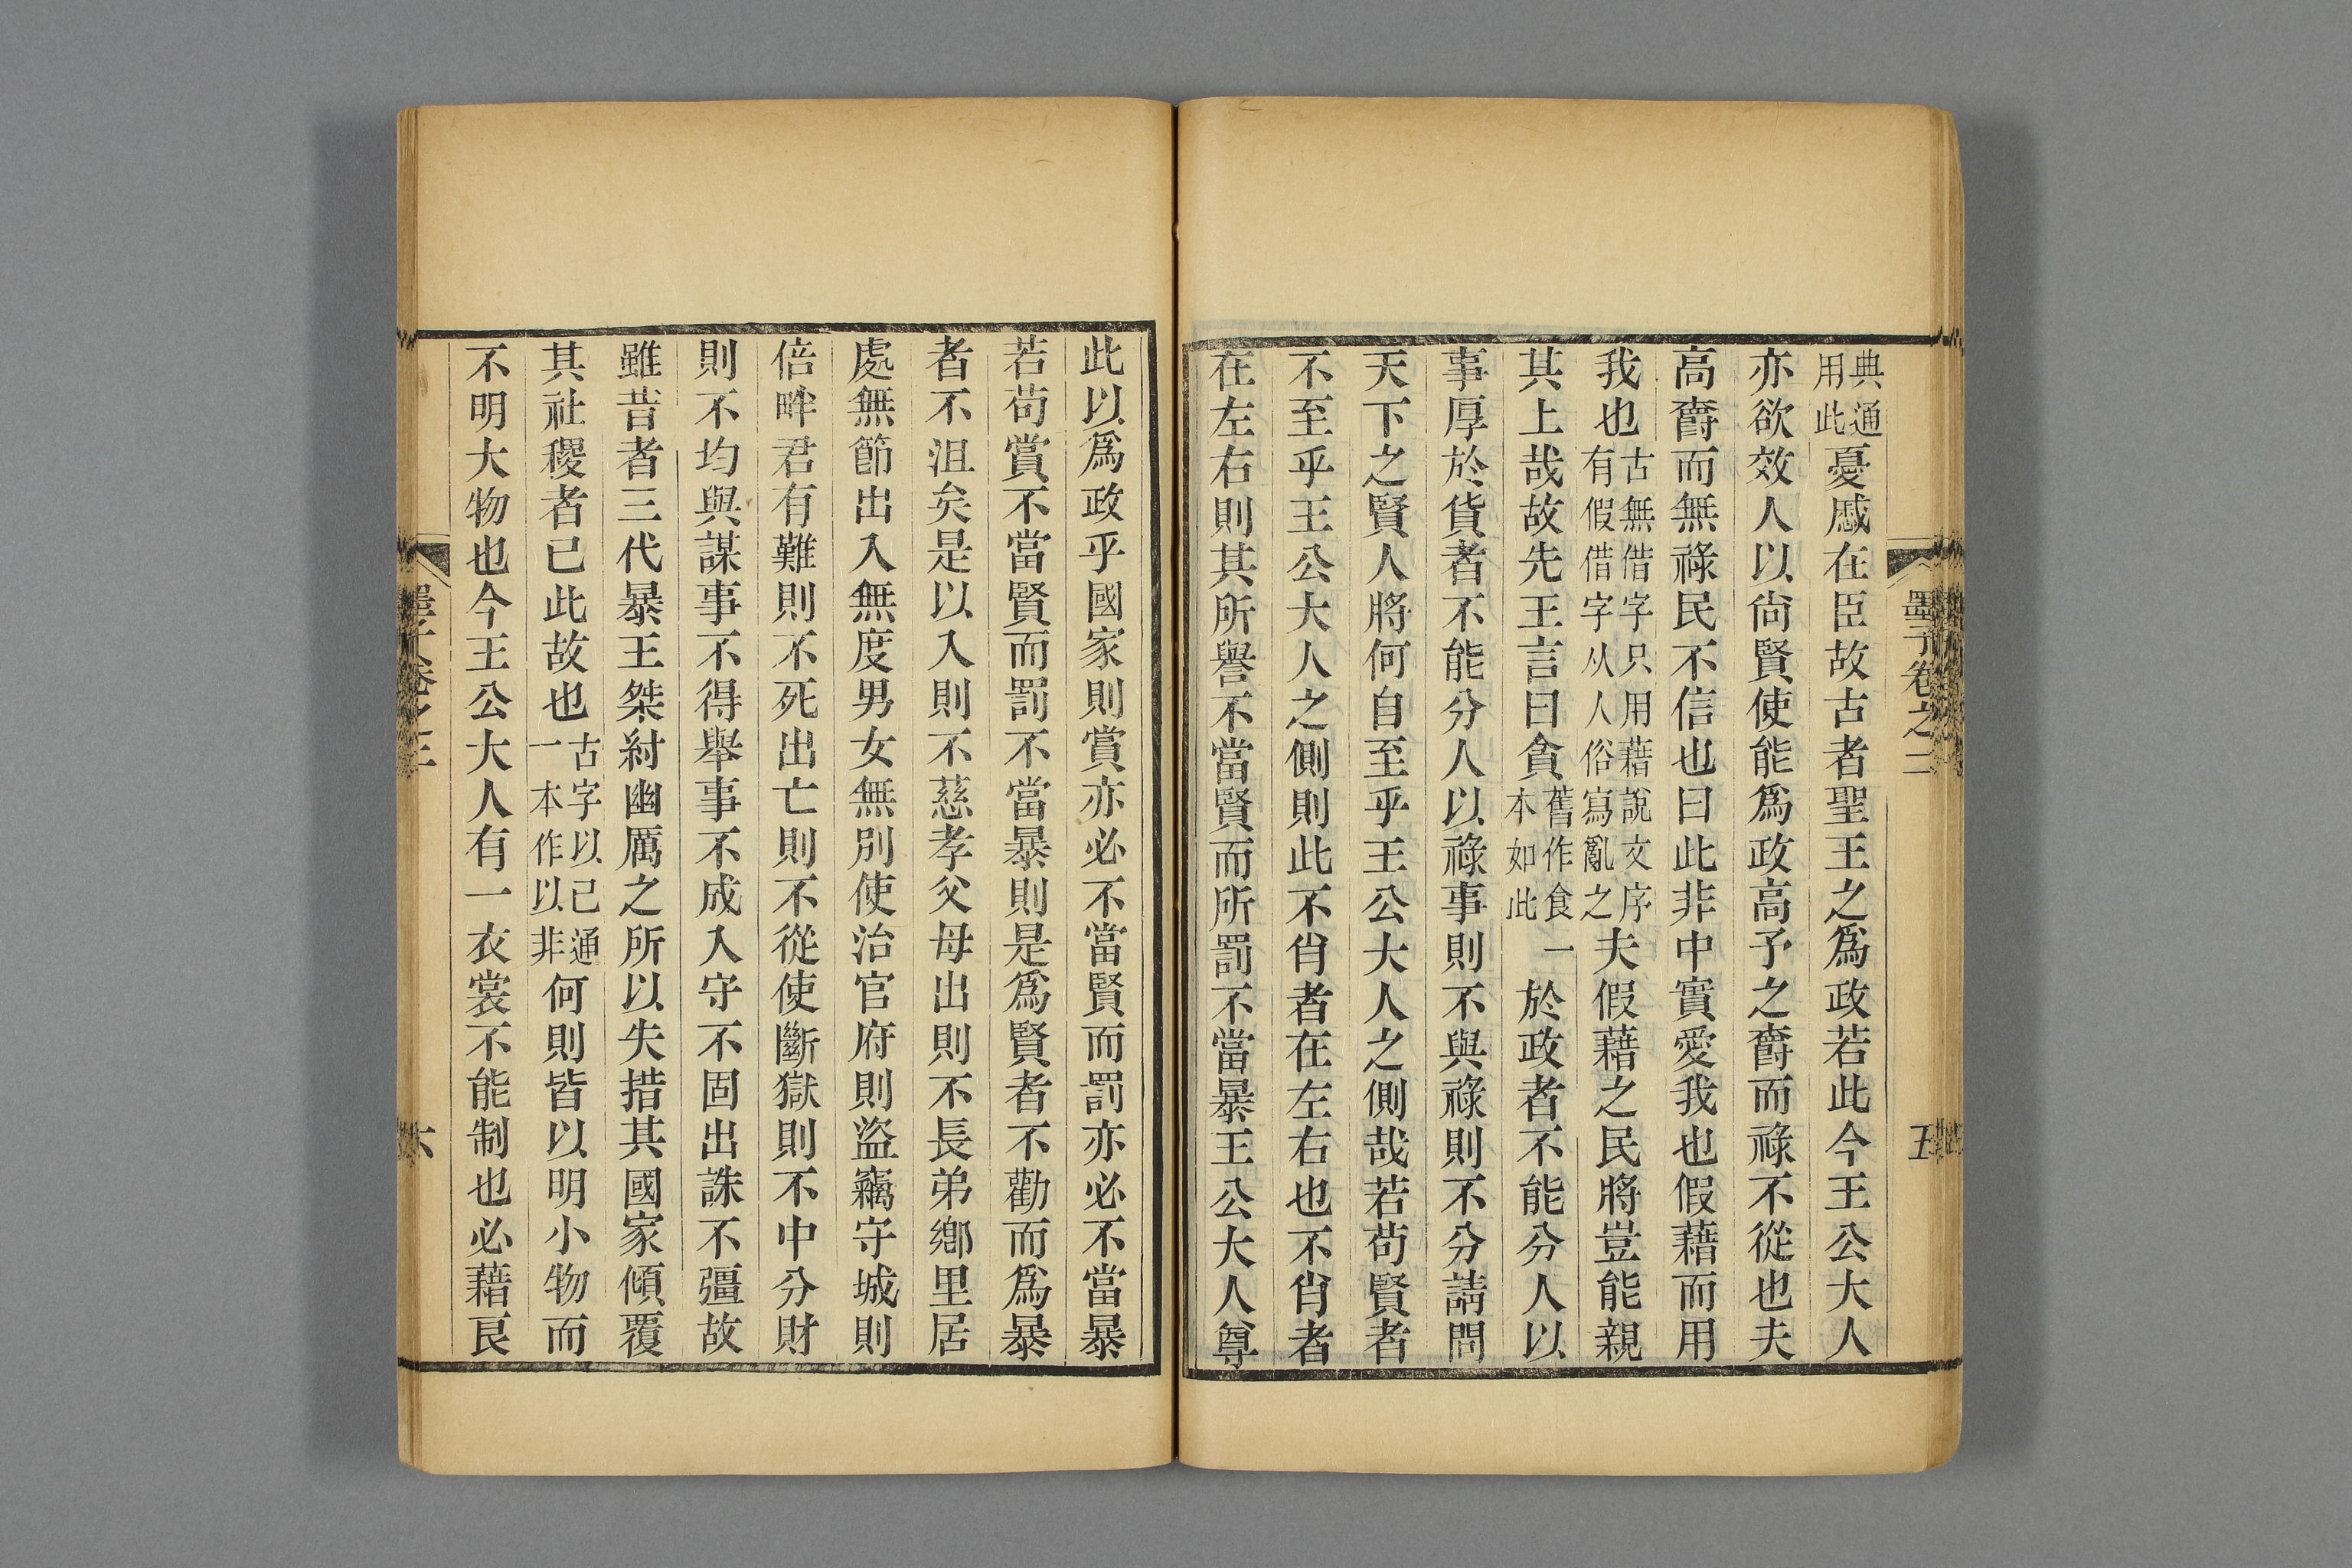 墨子卷之二
五
典通用此憂慼在臣故古者聖王之爲政若此今王公大人
亦欲效人以尙賢使能爲政高予之爵而祿不從也夫
高爵而無祿民不信也曰此非中實愛我也假藉而用
我也古無借字只用藉說文序有假借字从人俗寫亂之夫假藉之民將豈能親
其上哉故先王言曰貪舊作食一本如此於政者不能分人以
事厚於貨者不能分人以祿事則不與祿則不分請問
天下之賢人將何自至乎王公大人之側哉若苟賢者
不至乎王公大人之側則此不肖者在左右也不肖者
在左右則其所譽不當賢而所罰不當暴王公大人尊
此以爲政乎國家則賞亦必不當賢而罰亦必不當暴
若苟賞不當賢而罰不當暴則是爲賢者不勸而爲暴
者不沮矣是以入則不慈孝父母出則不長弟鄉里居
處無節出入無度男女無別使治官府則盜竊守城則
倍畔君有難則不死出亡則不從使斷獄則不中分財
則不均與謀事不得舉事不成入守不固出誅不彊故
雖昔者三代暴王桀紂幽厲之所以失措其國家傾覆
其社稷者已此故也古字以已通一本作以非何則皆以明小物而
不明大物也今王公大人有一衣裳不能制也必藉良
六